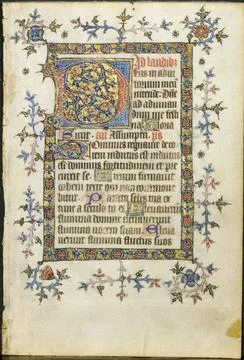 Ad laudib;
eus in adiu
torium meū
intende. Dñe
ad adiuuan
dum me festi
na. Gloria
Sicut. añ. Assumpta. ps
Dominus regnauit deco
rem indutus est indutus
est dominus fortitudinem et pre
cinxit se. Etenim firmauit
orbem terre qui non cōmoue
bitur. Parata sedes tua ex
tunc a seculo tu es. Eleuauerunt
flumina domine eleuauerunt
flumina uocem suam. Eleua
uerunt flumina fluctus suos